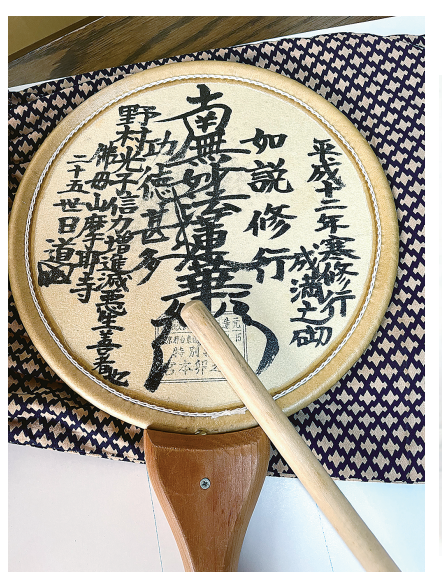 平成十二年寒修行
成満之砌
如説修行
南無妙法蓮華経
功徳甚多
野村光子信力増進滅悪生善者也
佛母山摩耶寺
二十五世日道
元
特別
宮本卯之